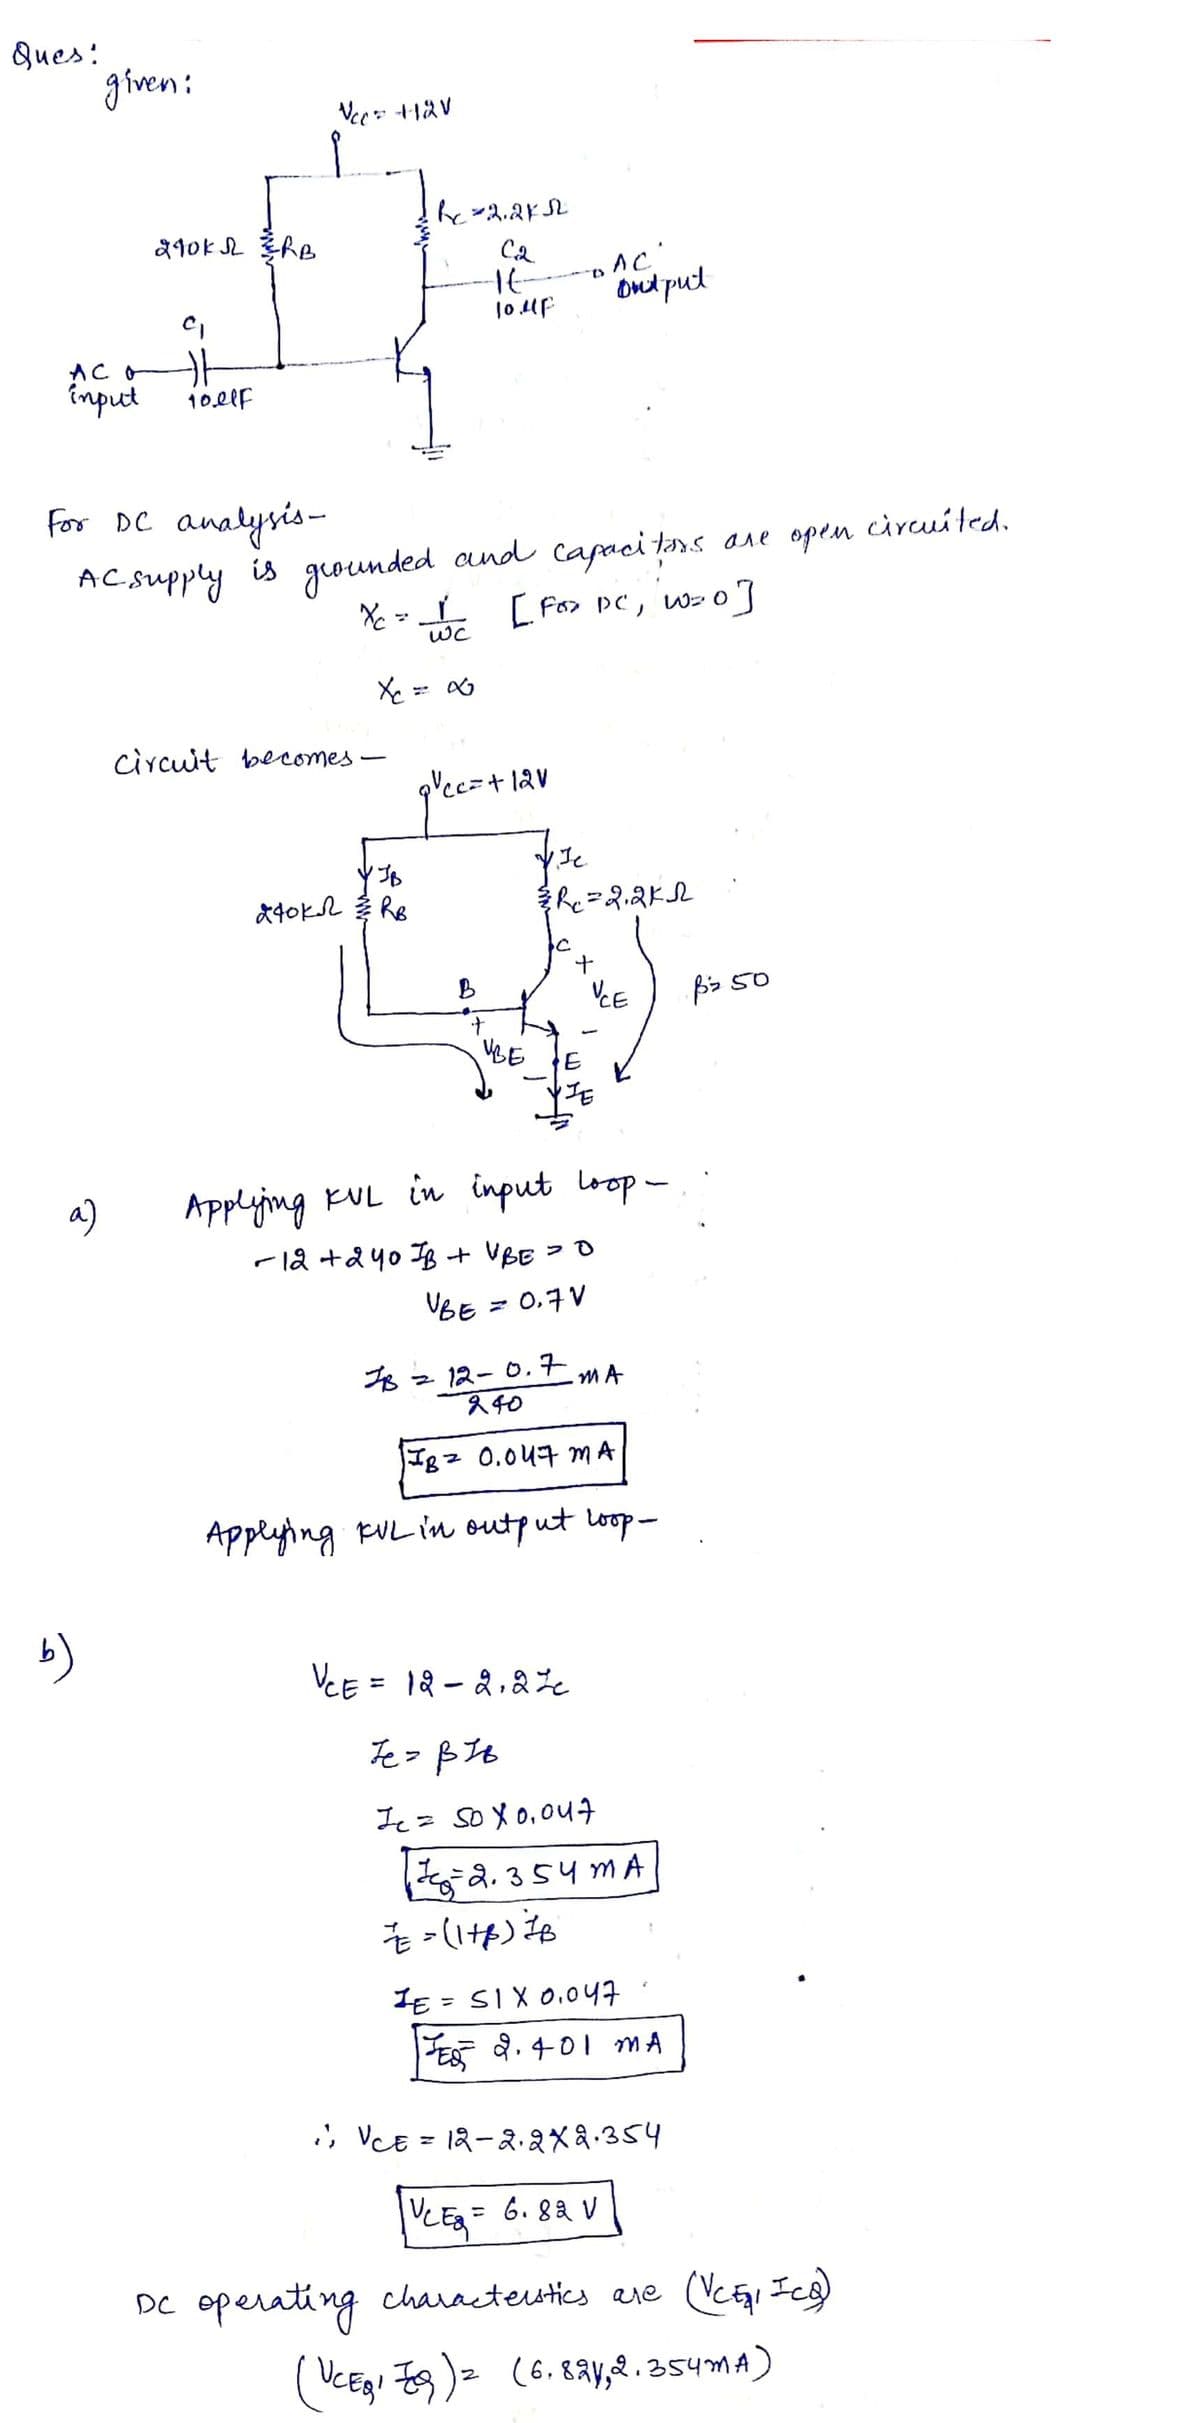 Ques:
given:
Vcc = +12V
Rc = 2.2k Ω
240k Ω RB
C2
AC output
10 µF
C1
AC input
10 µF
For DC analysis-
AC supply is grounded and capacitors are open circuited.
Xc = 1/wc [For DC, w=0]
Xc = ∞
circuit becomes –
Vcc = +12V
IB
Ic
240kΩ RB
Rc = 2.2kΩ
C
+
B
VCE
β = 50
+
–
VBE
E
–
IE
a) Applying KVL in input loop –
-12 + 240 IB + VBE = 0
VBE = 0.7 V
IB = 12 - 0.7 / 240 mA
IB = 0.047 mA
Applying KVL in output loop –
b)
VCE = 12 - 2.2 Ic
Ic = β IB
Ic = 50 X 0.047
ICQ = 2.354 mA
IE = (1+β) IB
IE = 51 X 0.047
IEQ = 2.401 mA
∴ VCE = 12 - 2.2 X 2.354
VCEQ = 6.82 V
DC operating characterstics are (VCEQ, ICQ)
(VCEQ, ICQ) = (6.82V, 2.354mA)